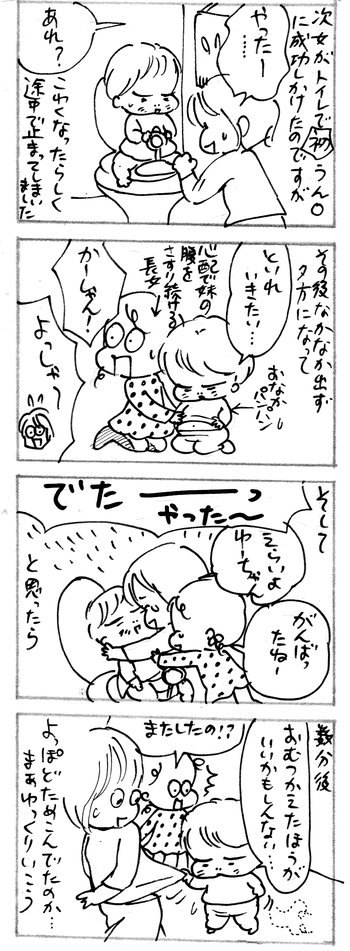 次女がトイレで初うん〇
に成功しかけたのですが
やったー
……
あれ？
こわくなったらしく
途中で止まってしまいました
その後なかなか出ず
夕方になって
といれ
いきたい…
心配で妹の
腰を
さすり続ける
長女
おなか
パンパン
かーしゃん！
よっしゃ〜
そして
でたーーーっ
やった〜
えらいよ
ゆーちゃん
がんばっ
たねー
と思ったら
数分後
おむつかえたほうが
いいかもしんない…
またしたの!?
よっぽどためこんでたのか…
まあゆっくりいこう